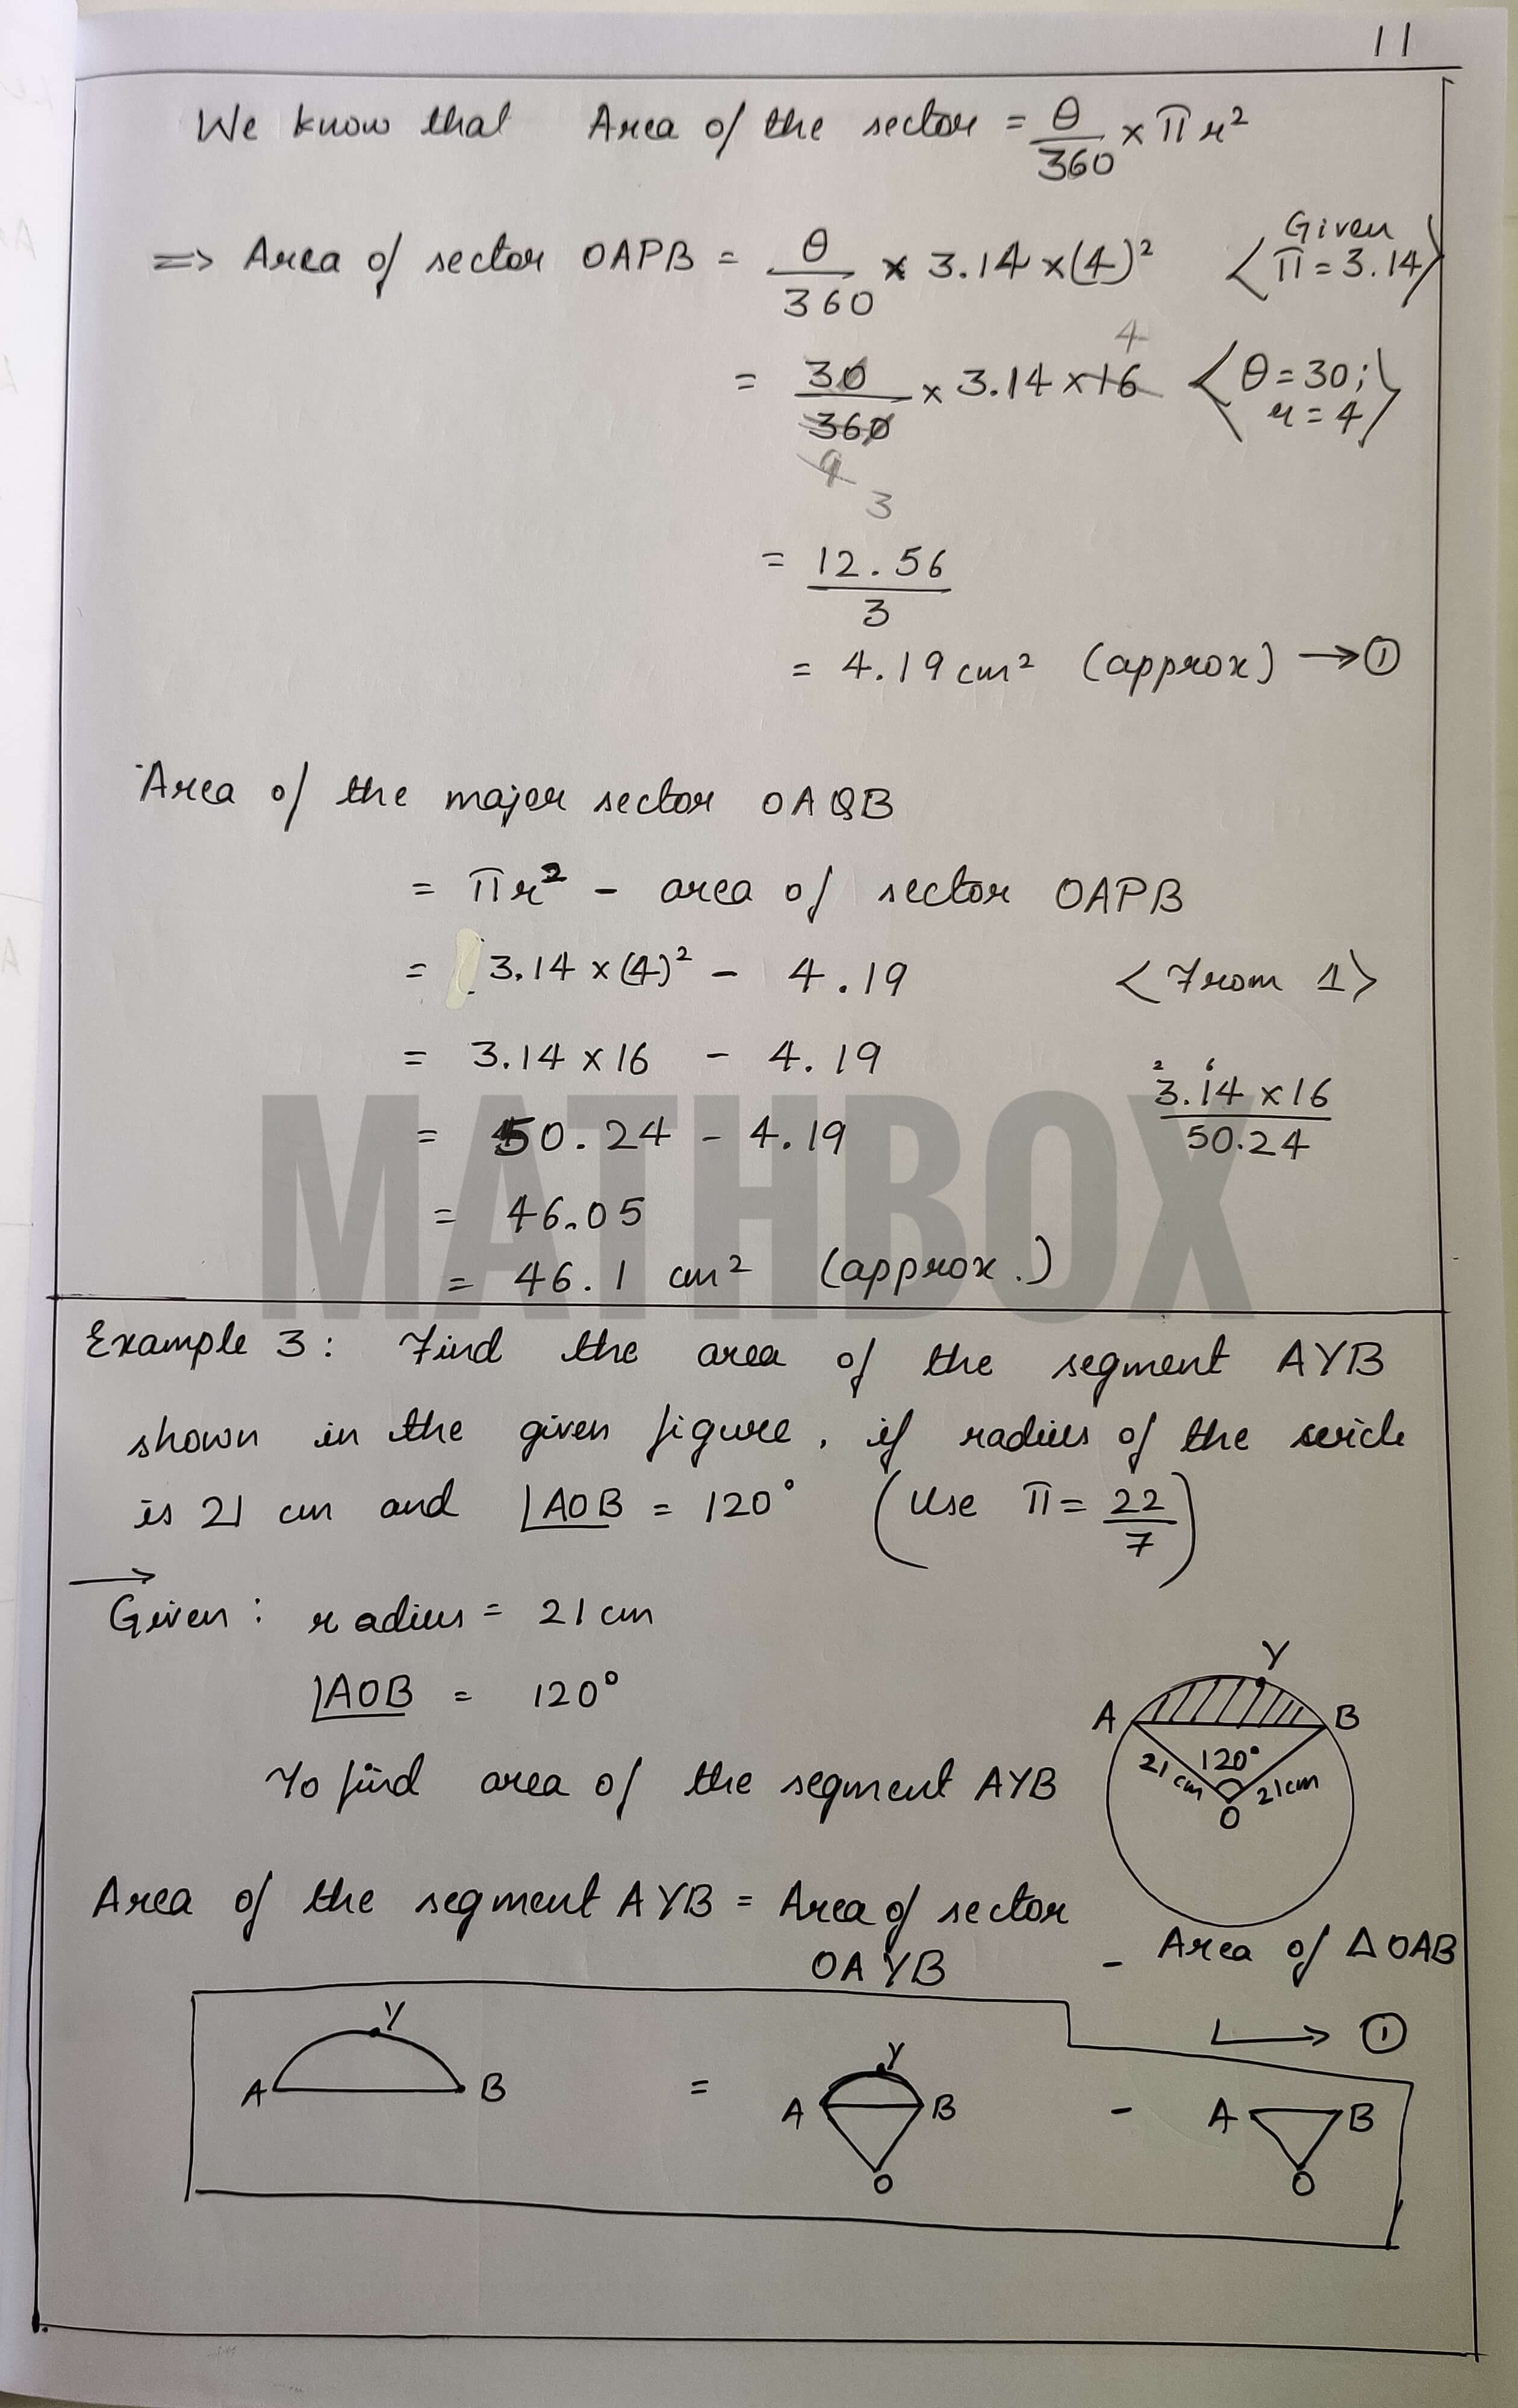 11
We know that Area of the sector = θ/360 × π r²
=> Area of sector OAPB = θ/360 × 3.14 × (4)² < Given π = 3.14 >
= 30/360 × 3.14 × 16 < θ = 30; r = 4 >
4
9
3
= 12.56/3
= 4.19 cm² (approx) → ①
Area of the major sector OAQB
= πr² - area of sector OAPB
= 3.14 × (4)² - 4.19 < From 1 >
= 3.14 × 16 - 4.19
= 50.24 - 4.19
2 6
3.14 × 16
50.24
= 46.05
= 46.1 cm² (approx.)
MATHBOX
Example 3: Find the area of the segment AYB
shown in the given figure, if radius of the
is 21 cm and ∠AOB = 120° (Use π = 22/7)
→
Given: radius = 21 cm
∠AOB = 120°
To find area of the segment AYB
Y
A B
21 cm 120° 21cm
O
Area of the segment AYB = Area of sector OAYB - Area of ΔOAB
→ ①
Y
A B
=
Y
A B
O
-
A B
O